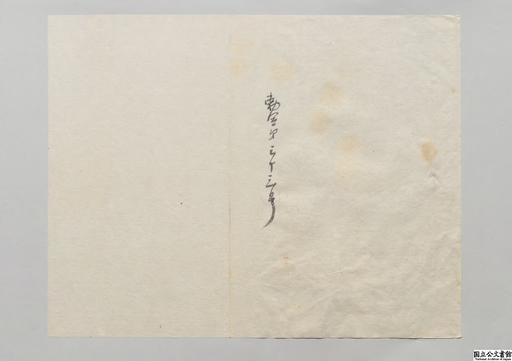 勅令第三十三号
国立公文書館
National Archives of Japan